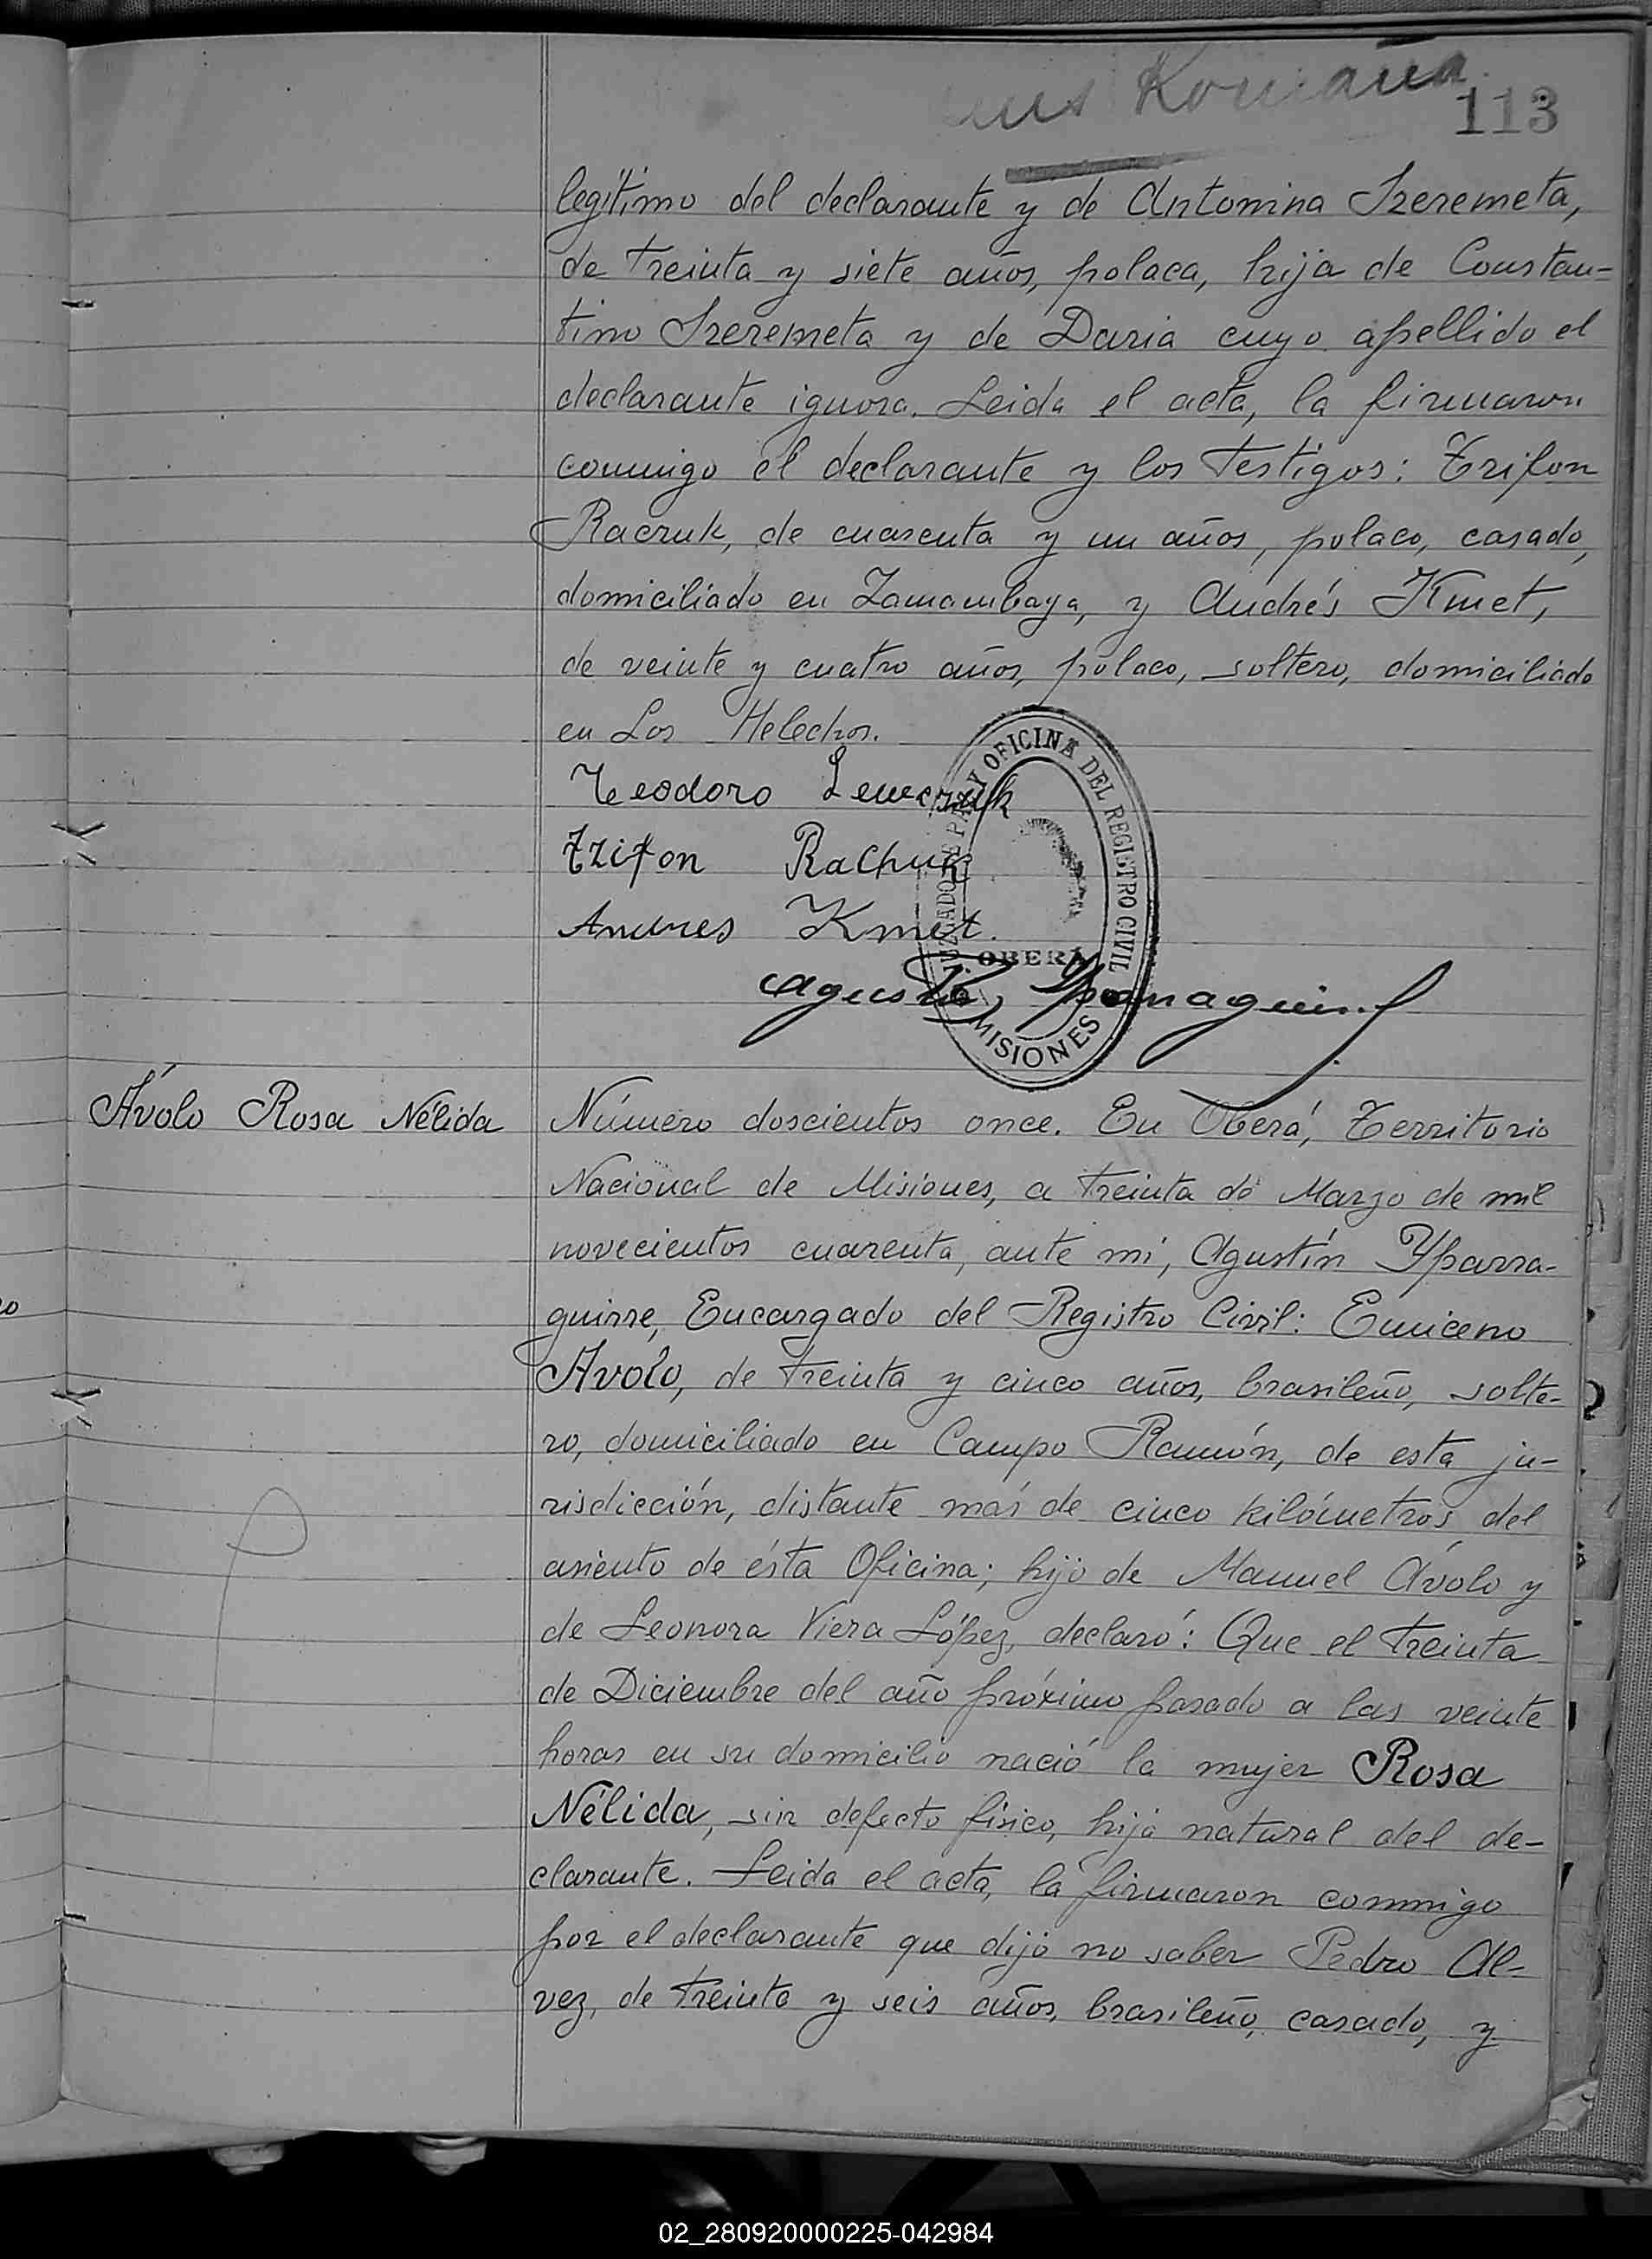 113
legítimo del declarante y de Antonina Szeremeta,
de treinta y siete años, polaca, hija de Constan-
tino Szeremeta y de Daria cuyo apellido el
declarante ignora. Leida el acta, la firmaron
conmigo el declarante y los testigos: Trifon
Raczuk, de cuarenta y un años, polaco, casado,
domiciliado en Zamambaya, y Andrés Kmet,
de veinte y cuatro años, polaco, soltero, domiciliado
en Los Helechos.
Teodoro Lewczuk
Trifon Rachuk
Andres Kmet.
JUZGADO DE PAZ Y OFICINA DEL REGISTRO CIVIL
OBERÁ
MISIONES
Agustín Yparraguirre
Ávolo Rosa Nélida
Número doscientos once. En Oberá, Territorio
Nacional de Misiones, a treinta de Marzo de mil
novecientos cuarenta, ante mí, Agustín Yparra-
guirre, Encargado del Registro Civil: Emiceno
Ávolo, de treinta y cinco años, brasileño, solte-
ro, domiciliado en Campo Ramón, de esta ju-
risdicción, distante más de cinco kilómetros del
asiento de ésta Oficina; hijo de Manuel Ávolo y
de Leonora Viera López, declaró: Que el treinta
de Diciembre del año próximo pasado a las veinte
horas en su domicilio nació la mujer Rosa
Nélida, sin defecto físico, hija natural del de-
clarante. Leida el acta, la firmaron conmigo
por el declarante que dijo no saber Pedro Al-
vez, de treinta y seis años, brasileño, casado, y
02_280920000225-042984